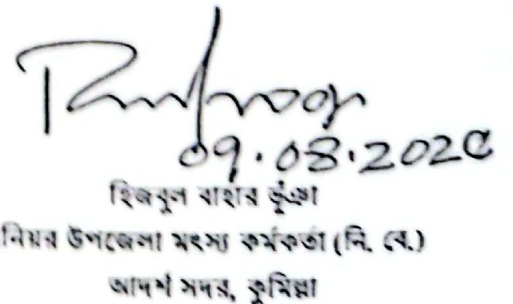 09.08.202৫
হিজবুল বাহার ভূঁঞা
নিয়র উপজেলা মৎস্য কর্মকর্তা (নি. বে.)
আদর্শ সদর, কুমিল্লা